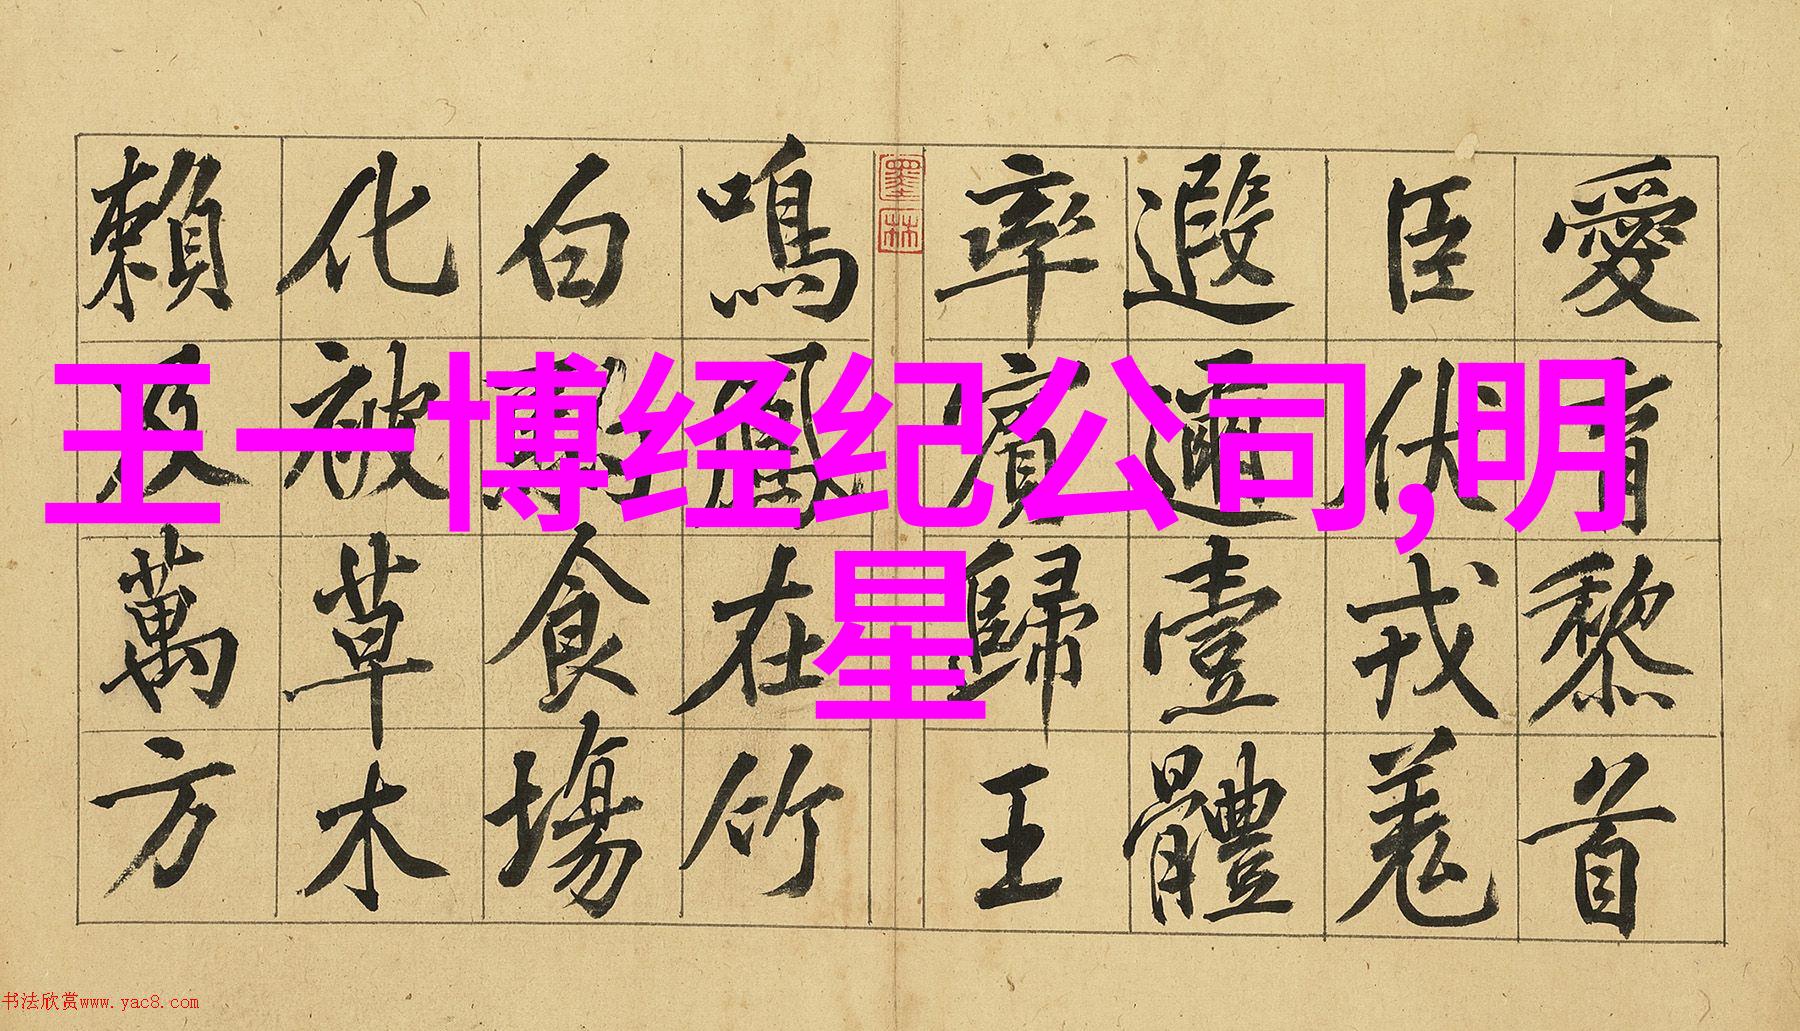 愛育黎首
臣伏戎羌
遐邇壹體
率賓歸王
墨林
鳴鳳在竹
白駒食場
化被草木
賴及萬方
王一博经纪公司,明
星
书法欣赏www.yac8.com